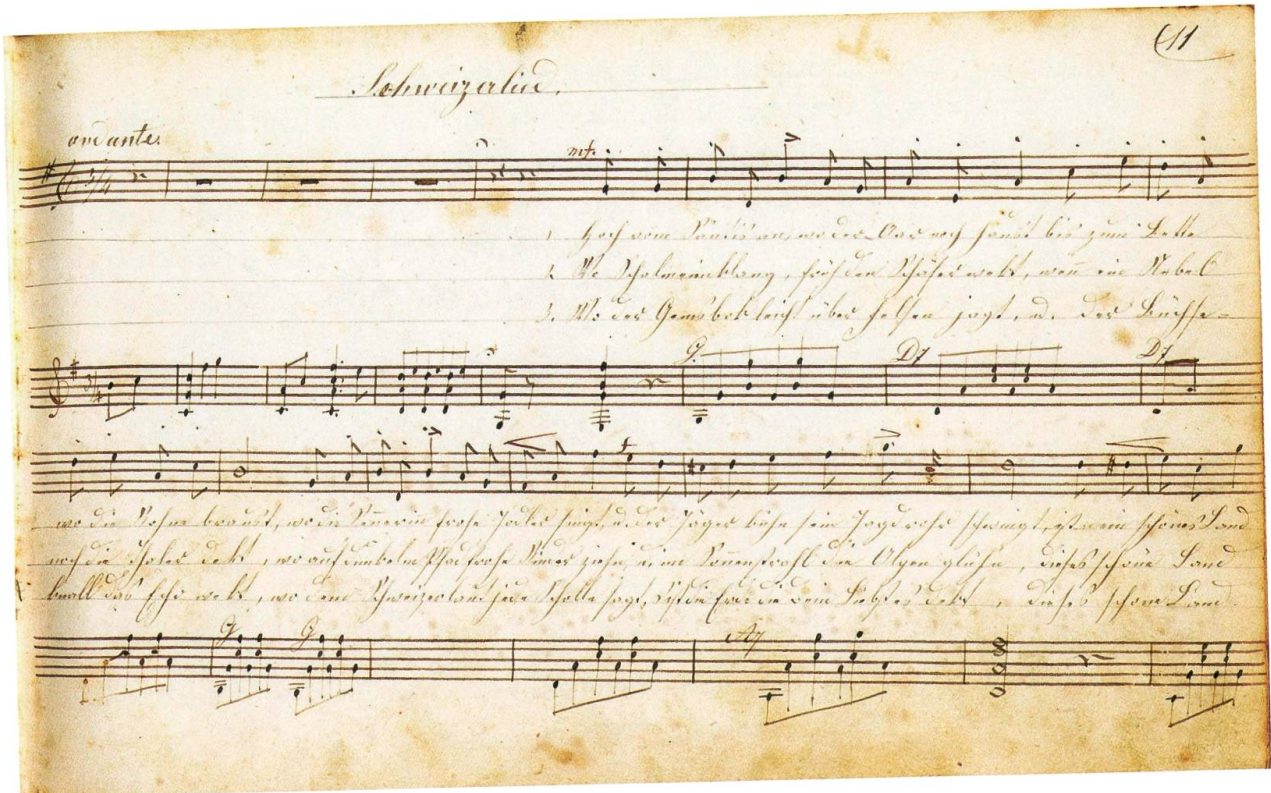 11
Schweizerlied.
andante.
mf.
1. Hoch vom Säntis an, wo der Aar noch haust bis zum Bette
2. Wo Schalmeienklang, früh den Schäfer wekt, wenn ein Nebel
3. Wo der Gemsbok leicht über Felsen jagt, u. der Büchse-
G. D7 D7
f
wo die braust, wo die Sennerin frohe Jodler singt, u. der Jäger kühn sein Jagdrohr schwingt, ist mein schönes Land
noch die Thäler dekt, wo auf dunkelm Pfad frohe ziehn, u. im Sonnenstrahl die Alpen glühn, dieses schöne Land
knall das Echo wekt, wo dem Schweizerland jede Scholle sagt, dein Liebstes dekt, dieses schöne Land
G G A7